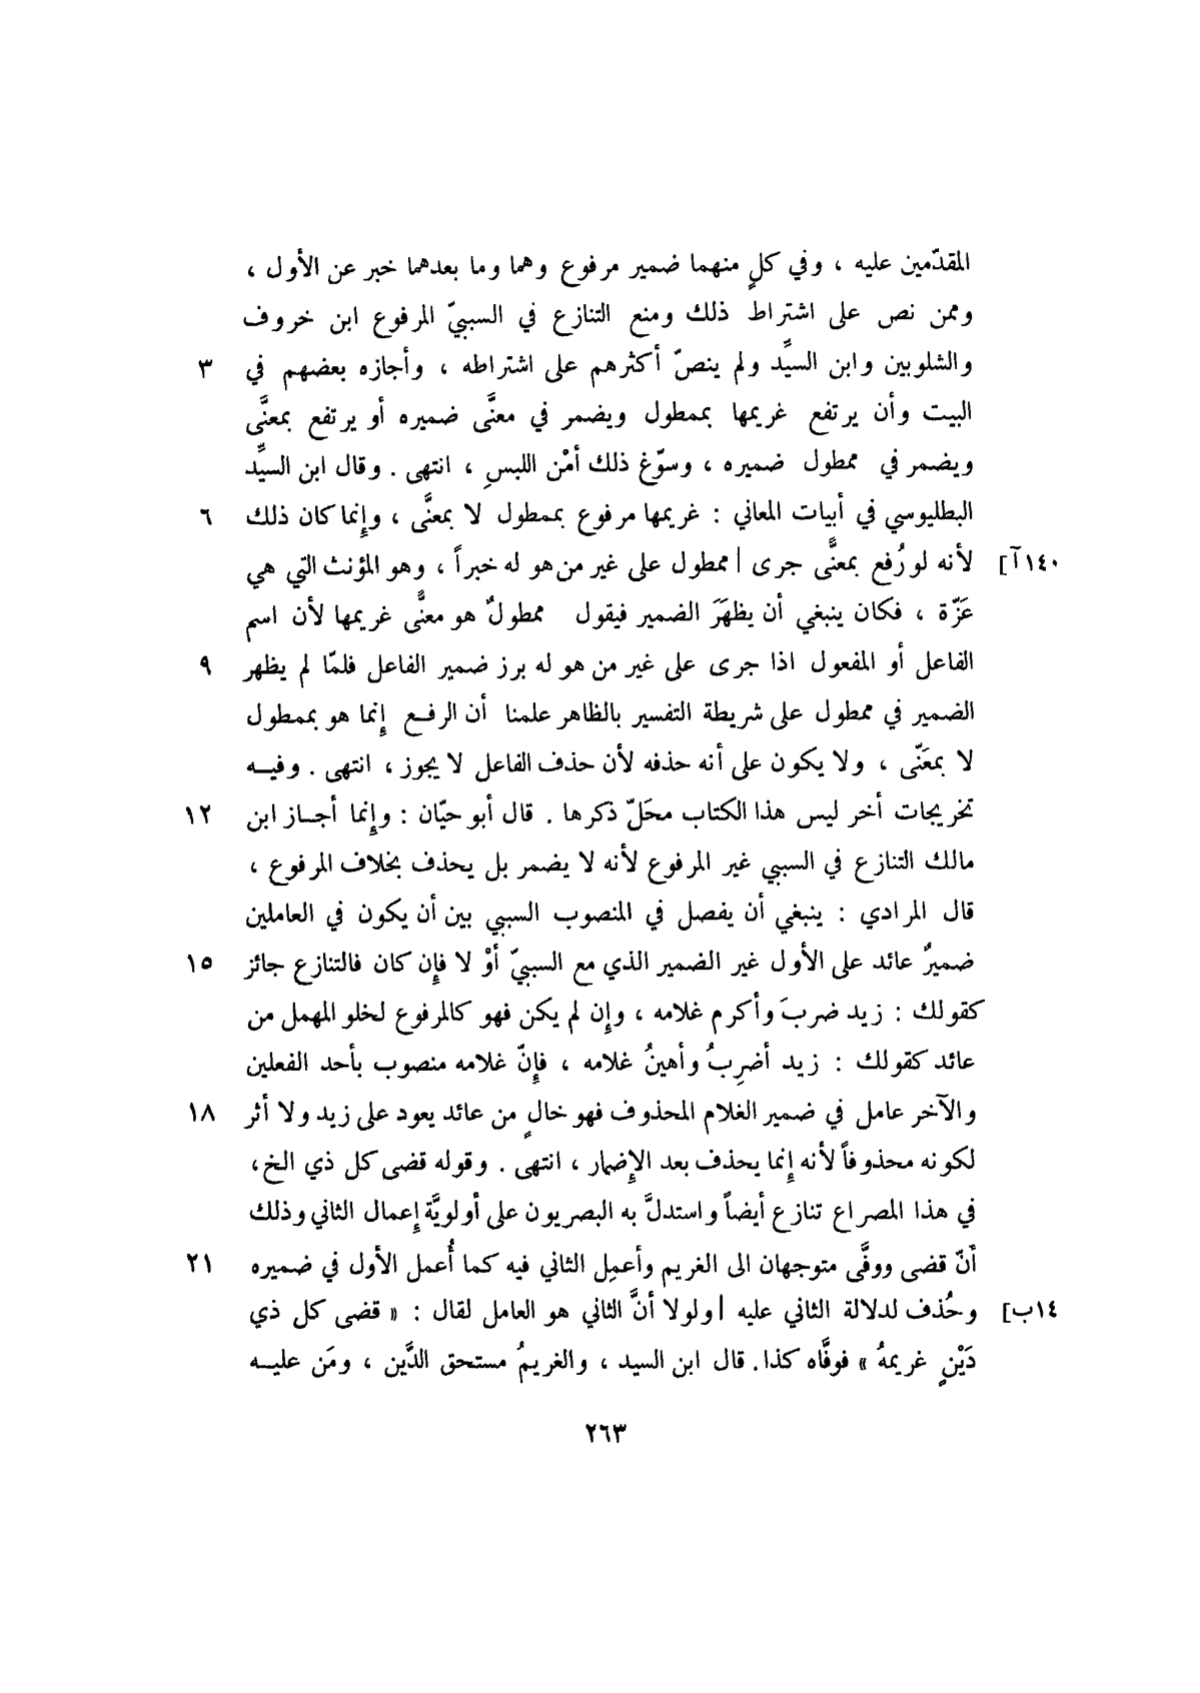 المقدّمين عليه ، وفي كلٍ منهما ضمير مرفوع وهما وما بعدهما خبر عن الأول ،
وممن نص على اشتراط ذلك ومنع التنازع في السببيّ المرفوع ابن خروف
والشلوبين وابن السيِّد ولم ينصّ أكثرهم على اشتراطه ، وأجازه بعضهم في ٣
البيت وأن يرتفع غريمها بممطول ويضمر في معنًّى ضميره أو يرتفع بمعنًّى
ويضمر في ممطول ضميره ، وسوّغ ذلك أمْن اللبسِ ، انتهى . وقال ابن السيِّد
البطليوسي في أبيات المعاني : غريمها مرفوع بممطول لا بمعنًّى ، وإِنما كان ذلك ٦
١٤٠آ] لأنه لو رُفع بمعنًّى جرى | ممطول على غير من هو له خبراً ، وهو المؤنث التي هي
عَزّة ، فكان ينبغي أن يظهَرَ الضمير فيقول ممطولٌ هو معنًّى غريمها لأن اسم
الفاعل أو المفعول اذا جرى على غير من هو له برز ضمير الفاعل فلمّا لم يظهر ٩
الضمير في ممطول على شريطة التفسير بالظاهر علمنا أن الرفع إِنما هو بممطول
لا بمعَنّى ، ولا يكون على أنه حذفه لأن حذف الفاعل لا يجوز ، انتهى . وفيه
تخريجات أخر ليس هذا الكتاب محَلّ ذكرها . قال أبو حيّان : وإِنما أجاز ابن ١٢
مالك التنازع في السببي غير المرفوع لأنه لا يضمر بل يحذف بخلاف المرفوع ،
قال المرادي : ينبغي أن يفصل في المنصوب السببي بين أن يكون في العاملين
ضميرٌ عائد على الأول غير الضمير الذي مع السببيّ أوْ لا فإِن كان فالتنازع جائز ١٥
كقولك : زيد ضربَ وأكرم غلامه ، وإِن لم يكن فهو كالمرفوع لخلو المهمل من
عائد كقولك : زيد أضرِبُ وأهينُ غلامه ، فإِنّ غلامه منصوب بأحد الفعلين
والآخر عامل في ضمير الغلام المحذوف فهو خالٍ من عائد يعود على زيد ولا أثر ١٨
لكونه محذوفاً لأنه إِنما يحذف بعد الإِضمار ، انتهى . وقوله قضى كل ذي الخ ،
في هذا المصراع تنازع أيضاً واستدلَّ به البصريون على أولويَّة إِعمال الثاني وذلك
أنّ قضى ووفَّى متوجهان الى الغريم وأعمِل الثاني فيه كما أُعمل الأول في ضميره ٢١
١٤ب] وحُذف لدلالة الثاني عليه | ولولا أنَّ الثاني هو العامل لقال : « قضى كل ذي
دَيْنٍ غريمهُ » فوفَّاه كذا . قال ابن السيد ، والغريمُ مستحق الدَّين ، ومَن عليه
٢٦٣